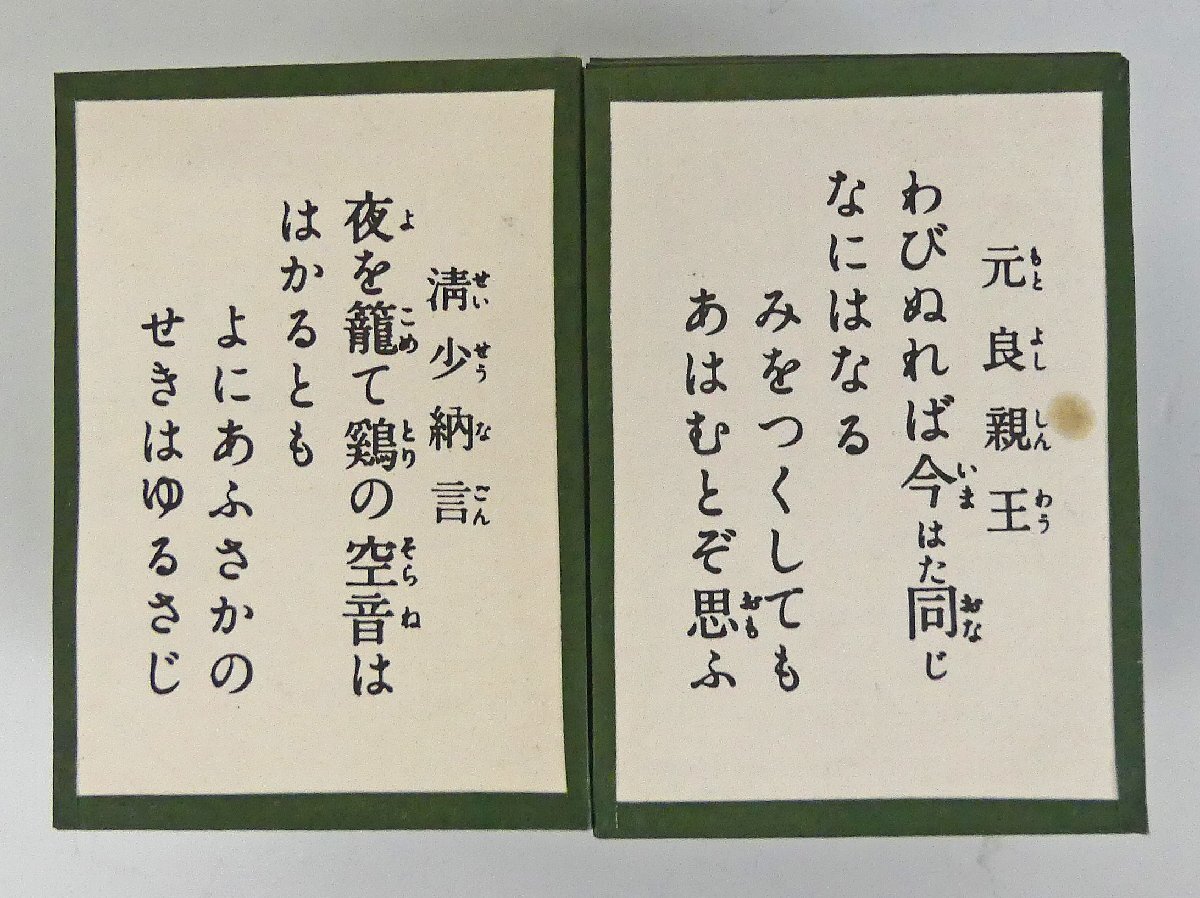 元良親王
わびぬれば今はた同じ
なにはなる
みをつくしても
あはむとぞ思ふ
清少納言
夜を籠て鷄の空音は
はかるとも
よにあふさかの
せきはゆるさじ